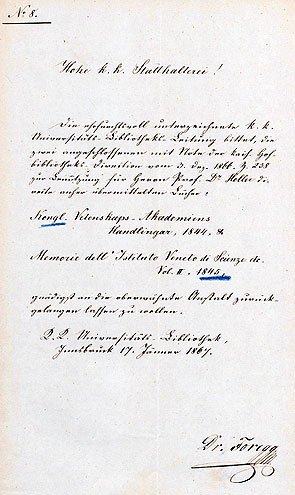 No 8.
Hohe k. k. Statthalterei!
Die ehrfurchtsvoll unterzeichnete k. k.
Universitäts-Bibliotheks-Leitung bittet, die
zwei angeschlossenen mit Note der kais. Hof-
bibliotheks-Direction vom 3. Dez. 1866. Z. 238
zur Benützung für Herrn Prof. Dr. Heller di-
recte anher übermittelten Bücher:
Köngl. Vetenskaps-Akademiens
Handlingar, 1844. &
Memorie dell' Istituto Veneto di Scienze etc.
Vol. II. 1845,
gnädigst an die oberwähnte Anstalt zurück-
gelangen lassen zu wollen.
K. K. Universitäts-Bibliothek,
Innsbruck 17. Jänner 1867.
Dr.